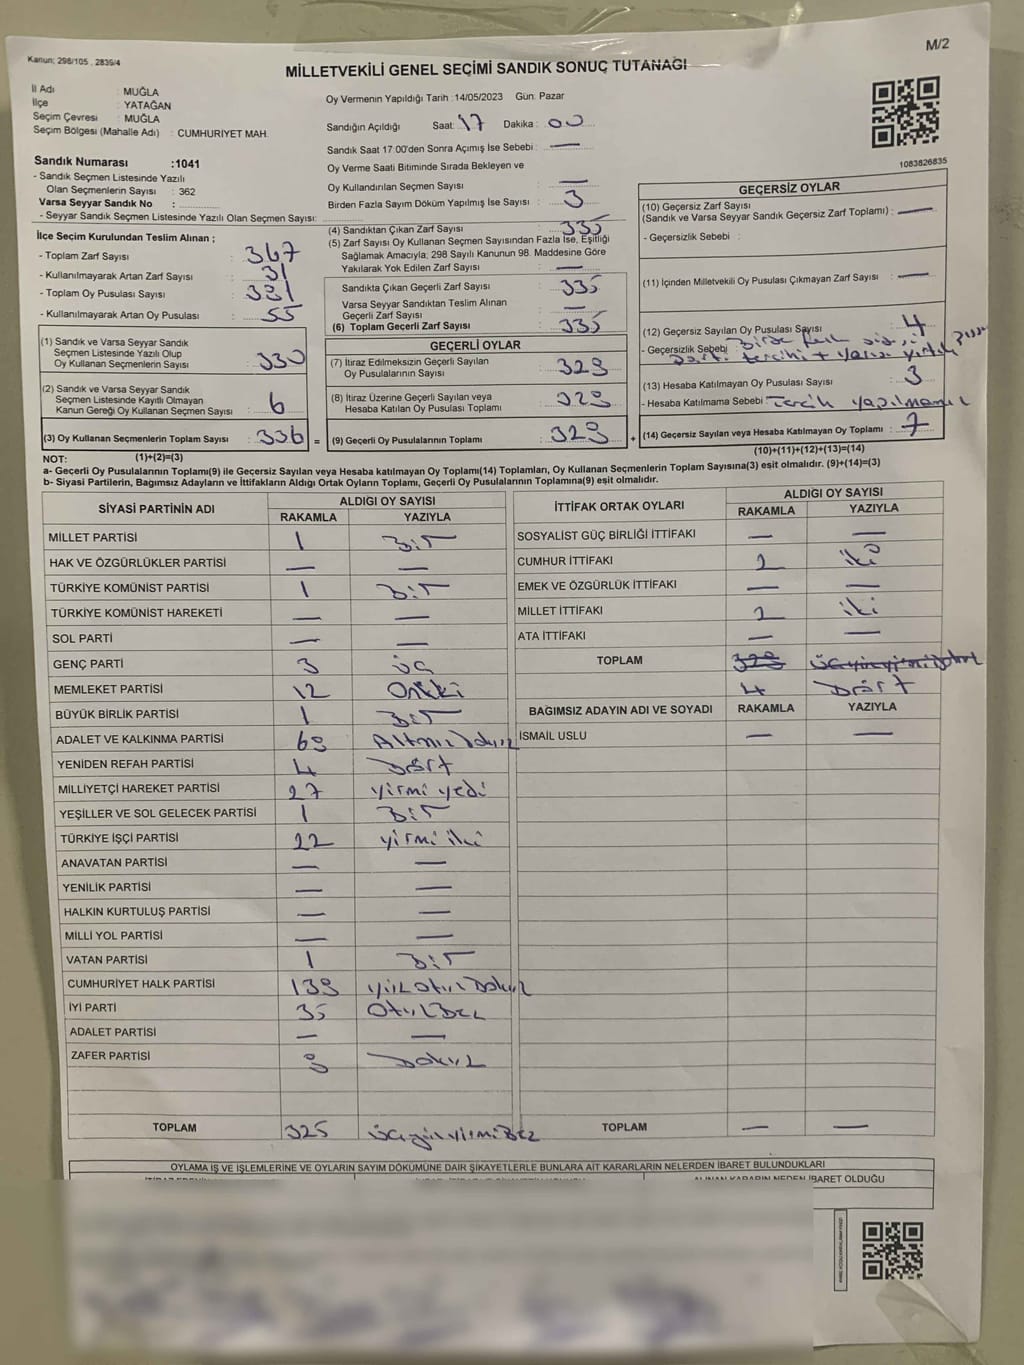 M/2
Kanun; 298/105 , 2839/4
MİLLETVEKİLİ GENEL SEÇİMİ SANDIK SONUÇ TUTANAĞI
İl Adı : MUĞLA
İlçe : YATAĞAN
Seçim Çevresi : MUĞLA
Seçim Bölgesi (Mahalle Adı) : CUMHURİYET MAH.
Sandık Numarası :1041
- Sandık Seçmen Listesinde Yazılı
Olan Seçmenlerin Sayısı : 362
Varsa Seyyar Sandık No :
- Seyyar Sandık Seçmen Listesinde Yazılı Olan Seçmen Sayısı:
Oy Vermenin Yapıldığı Tarih :14/05/2023 Gün: Pazar
Sandığın Açıldığı Saat: 17 Dakika: 00
Sandık Saat 17.00'den Sonra Açımış İse Sebebi : —
Oy Verme Saati Bitiminde Sırada Bekleyen ve
Oy Kullandırılan Seçmen Sayısı : —
Birden Fazla Sayım Döküm Yapılmış İse Sayısı : 3
1083826835
İlçe Seçim Kurulundan Teslim Alınan ;
- Toplam Zarf Sayısı : 367
- Kullanılmayarak Artan Zarf Sayısı : 31
- Toplam Oy Pusulası Sayısı :
- Kullanılmayarak Artan Oy Pusulası : 55
(1) Sandık ve Varsa Seyyar Sandık
Seçmen Listesinde Yazılı Olup
Oy Kullanan Seçmenlerin Sayısı : 330
(2) Sandık ve Varsa Seyyar Sandık
Seçmen Listesinde Kayıtlı Olmayan
Kanun Gereği Oy Kullanan Seçmen Sayısı : 6
(3) Oy Kullanan Seçmenlerin Toplam Sayısı : 336 =
(4) Sandıktan Çıkan Zarf Sayısı : 335
(5) Zarf Sayısı Oy Kullanan Seçmen Sayısından Fazla İse, Eşitliği
Sağlamak Amacıyla; 298 Sayılı Kanunun 98. Maddesine Göre
Yakılarak Yok Edilen Zarf Sayısı : —
Sandıkta Çıkan Geçerli Zarf Sayısı : 335
Varsa Seyyar Sandıktan Teslim Alınan
Geçerli Zarf Sayısı : —
(6) Toplam Geçerli Zarf Sayısı : 335
GEÇERLİ OYLAR
(7) İtiraz Edilmeksizin Geçerli Sayılan
Oy Pusulalarının Sayısı : 329
(8) İtiraz Üzerine Geçerli Sayılan veya
Hesaba Katılan Oy Pusulası Toplamı : 329
(9) Geçerli Oy Pusulalarının Toplamı : 329 +
GEÇERSİZ OYLAR
(10) Geçersiz Zarf Sayısı
(Sandık ve Varsa Seyyar Sandık Geçersiz Zarf Toplamı) : —
- Geçersizlik Sebebi :
(11) İçinden Milletvekili Oy Pusulası Çıkmayan Zarf Sayısı : —
(12) Geçersiz Sayılan Oy Pusulası Sayısı : 4
- Geçersizlik Sebebi :
tercihi + yarısı yırtık
(13) Hesaba Katılmayan Oy Pusulası Sayısı : 3
- Hesaba Katılmama Sebebi : Tercih yapılmamış
(14) Geçersiz Sayılan veya Hesaba Katılmayan Oy Toplamı : 7
NOT: (1)+(2)=(3)
(10)+(11)+(12)+(13)=(14)
a- Geçerli Oy Pusulalarının Toplamı(9) ile Geçersiz Sayılan veya Hesaba katılmayan Oy Toplamı(14) Toplamları, Oy Kullanan Seçmenlerin Toplam Sayısına(3) eşit olmalıdır. (9)+(14)=(3)
b- Siyasi Partilerin, Bağımsız Adayların ve İttifakların Aldığı Ortak Oyların Toplamı, Geçerli Oy Pusulalarının Toplamına(9) eşit olmalıdır.
SİYASİ PARTİNİN ADI ALDIĞI OY SAYISI
RAKAMLA YAZIYLA
MİLLET PARTİSİ 1 Bir
HAK VE ÖZGÜRLÜKLER PARTİSİ — —
TÜRKİYE KOMÜNİST PARTİSİ 1 Bir
TÜRKİYE KOMÜNİST HAREKETİ — —
SOL PARTİ — —
GENÇ PARTİ 3 Üç
MEMLEKET PARTİSİ 12 Oniki
BÜYÜK BİRLİK PARTİSİ 1 Bir
ADALET VE KALKINMA PARTİSİ 69 Altmış Dokuz
YENİDEN REFAH PARTİSİ 4 Dört
MİLLİYETÇİ HAREKET PARTİSİ 27 yirmi yedi
YEŞİLLER VE SOL GELECEK PARTİSİ 1 Bir
TÜRKİYE İŞÇİ PARTİSİ 22 yirmi iki
ANAVATAN PARTİSİ — —
YENİLİK PARTİSİ — —
HALKIN KURTULUŞ PARTİSİ — —
MİLLİ YOL PARTİSİ — —
VATAN PARTİSİ 1 Bir
CUMHURİYET HALK PARTİSİ 139 yüz otuz Dokuz
İYİ PARTİ 35 Otuz Beş
ADALET PARTİSİ — —
ZAFER PARTİSİ 9 Dokuz
TOPLAM 325 üçyüz yirmi Beş
İTTİFAK ORTAK OYLARI ALDIĞI OY SAYISI
RAKAMLA YAZIYLA
SOSYALİST GÜÇ BİRLİĞİ İTTİFAKI — —
CUMHUR İTTİFAKI 2 iki
EMEK VE ÖZGÜRLÜK İTTİFAKI — —
MİLLET İTTİFAKI 2 iki
ATA İTTİFAKI — —
TOPLAM 329 üçyüzyirmidokuz
4 Dört
BAĞIMSIZ ADAYIN ADI VE SOYADI RAKAMLA YAZIYLA
İSMAİL USLU — —
TOPLAM — —
OYLAMA İŞ VE İŞLEMLERİNE VE OYLARIN SAYIM DÖKÜMÜNE DAİR ŞİKAYETLERLE BUNLARA AİT KARARLARIN NELERDEN İBARET BULUNDUKLARI
ALINAN KARARIN NEDEN İBARET OLDUĞU